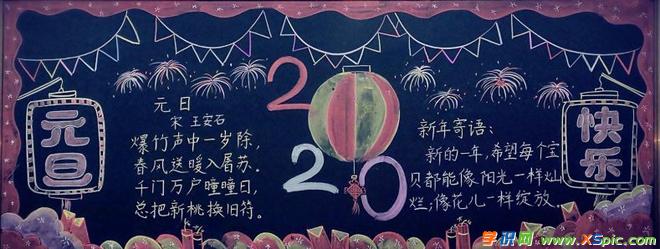 元旦
元日
宋 王安石
爆竹声中一岁除,
春风送暖入屠苏.
千门万户曈曈日,
总把新桃换旧符。
2020
新年寄语:
新的一年,希望每个宝
贝都能像阳光一样灿
烂;像花儿一样绽放.
快乐
学识网 www.XSpic.com